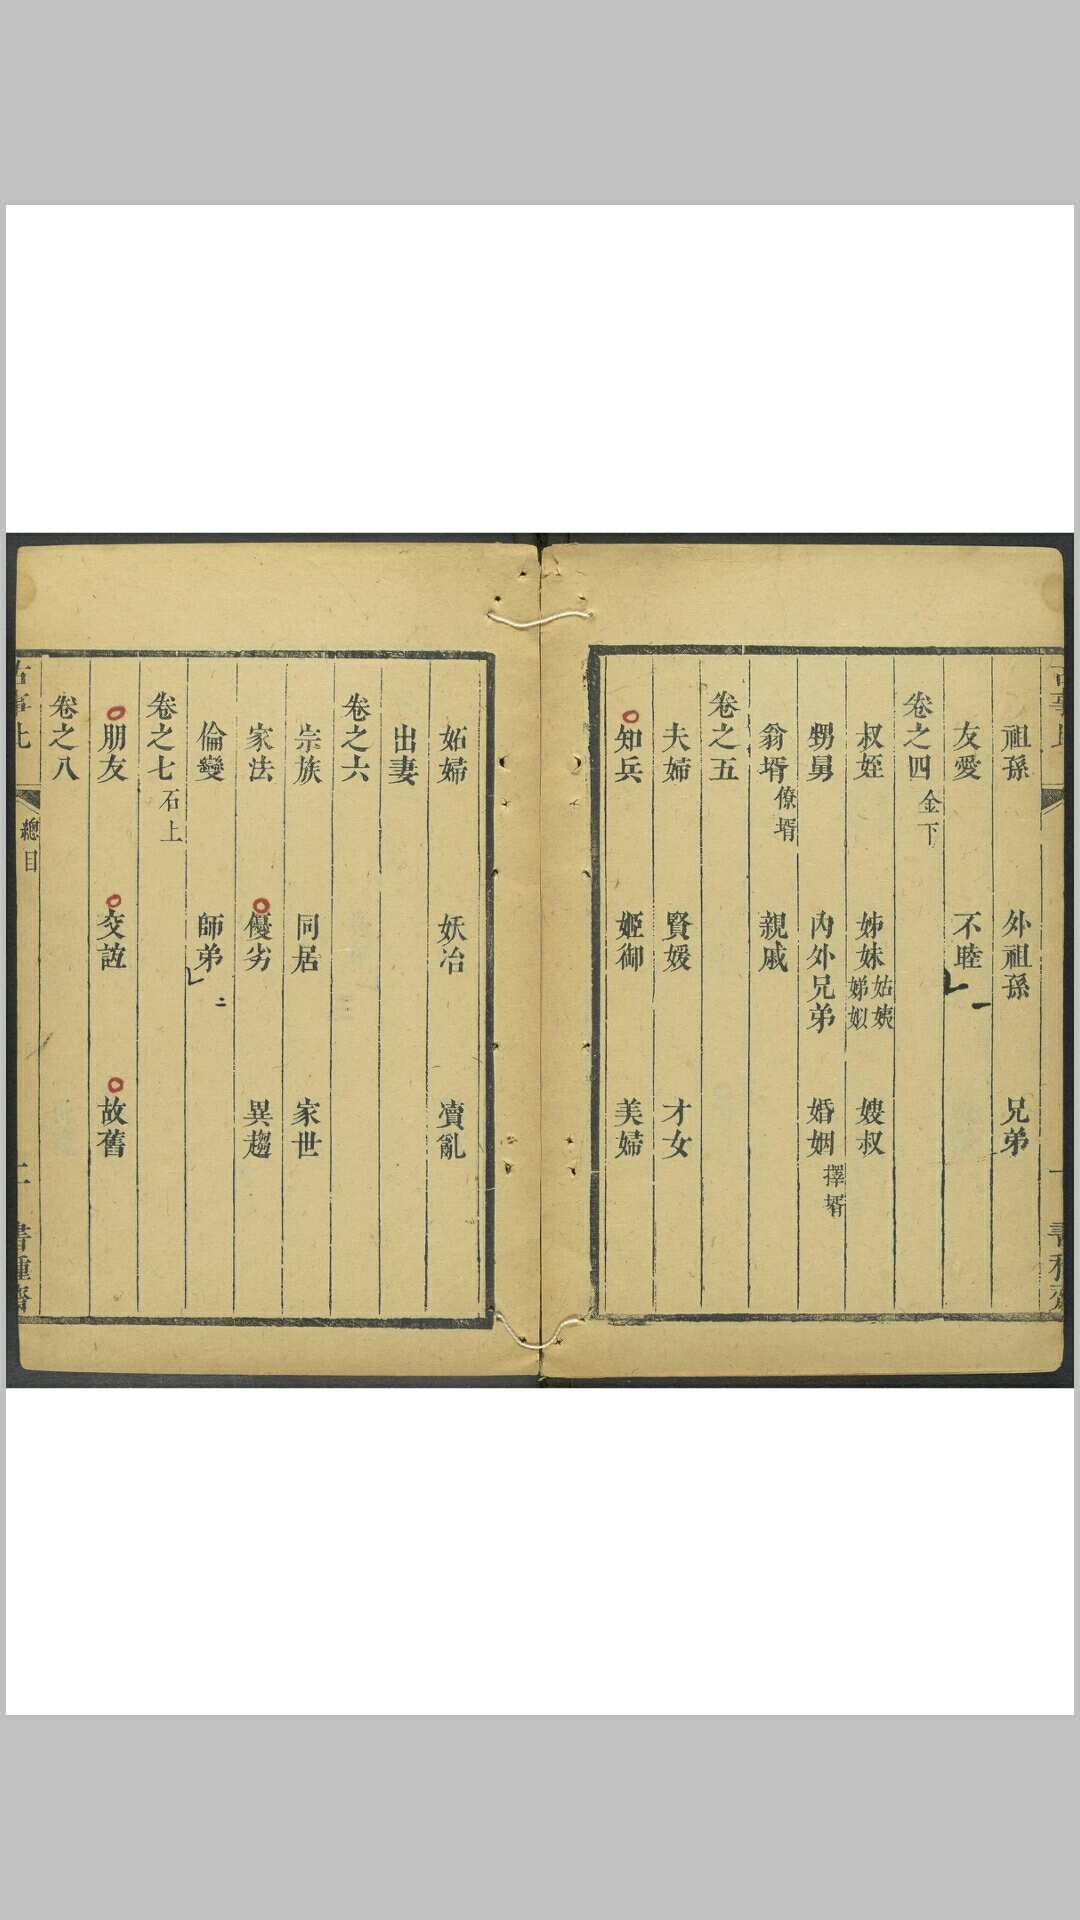 祖孫 外祖孫 兄弟
友愛 不睦
卷之四 金下
叔姪 姊妹 姑姨 娣姒 嫂叔
甥舅 內外兄弟 婚姻 擇壻
翁壻 僚壻 親戚
卷之五
夫婦 賢媛 才女
知兵 姬御 美婦
妬婦 妖冶 瀆亂
出妻
卷之六
宗族 同居 家世
家法 優劣 異趨
倫變 師弟 二
卷之七 石上
朋友 交誼 故舊
卷之八
古事比 總目 二 書種齋